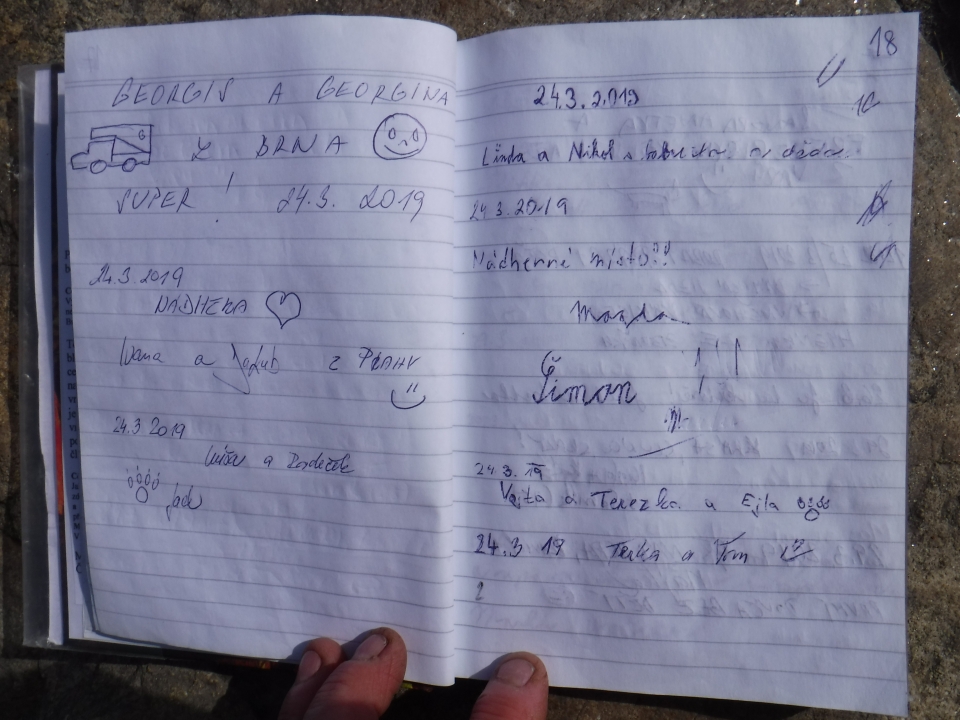 GEORGIS A GEORGINA
Z BRNA
SUPER! 24.3. 2019
24.3.2019
NÁDHERA
Ivana a Jakub z PRAHY
24.3 2019
a
Jack
18
24.3.2019
Linda a Nikol s
24.3.2019
Nádherné místo!!
Magda
Šimon
24.3.19
Vojta a Terezka a Ejla
24.3 19 Terka a Tom